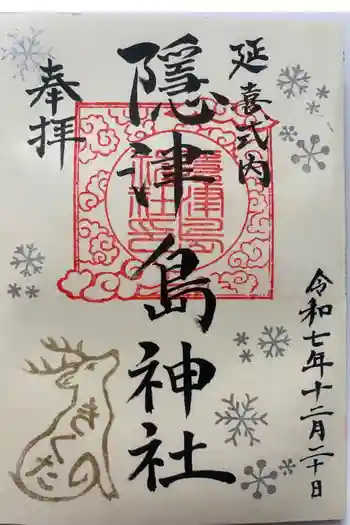 延喜式内
隱津島神社
奉拝
令和七年十二月二十日
隱津島
神社印